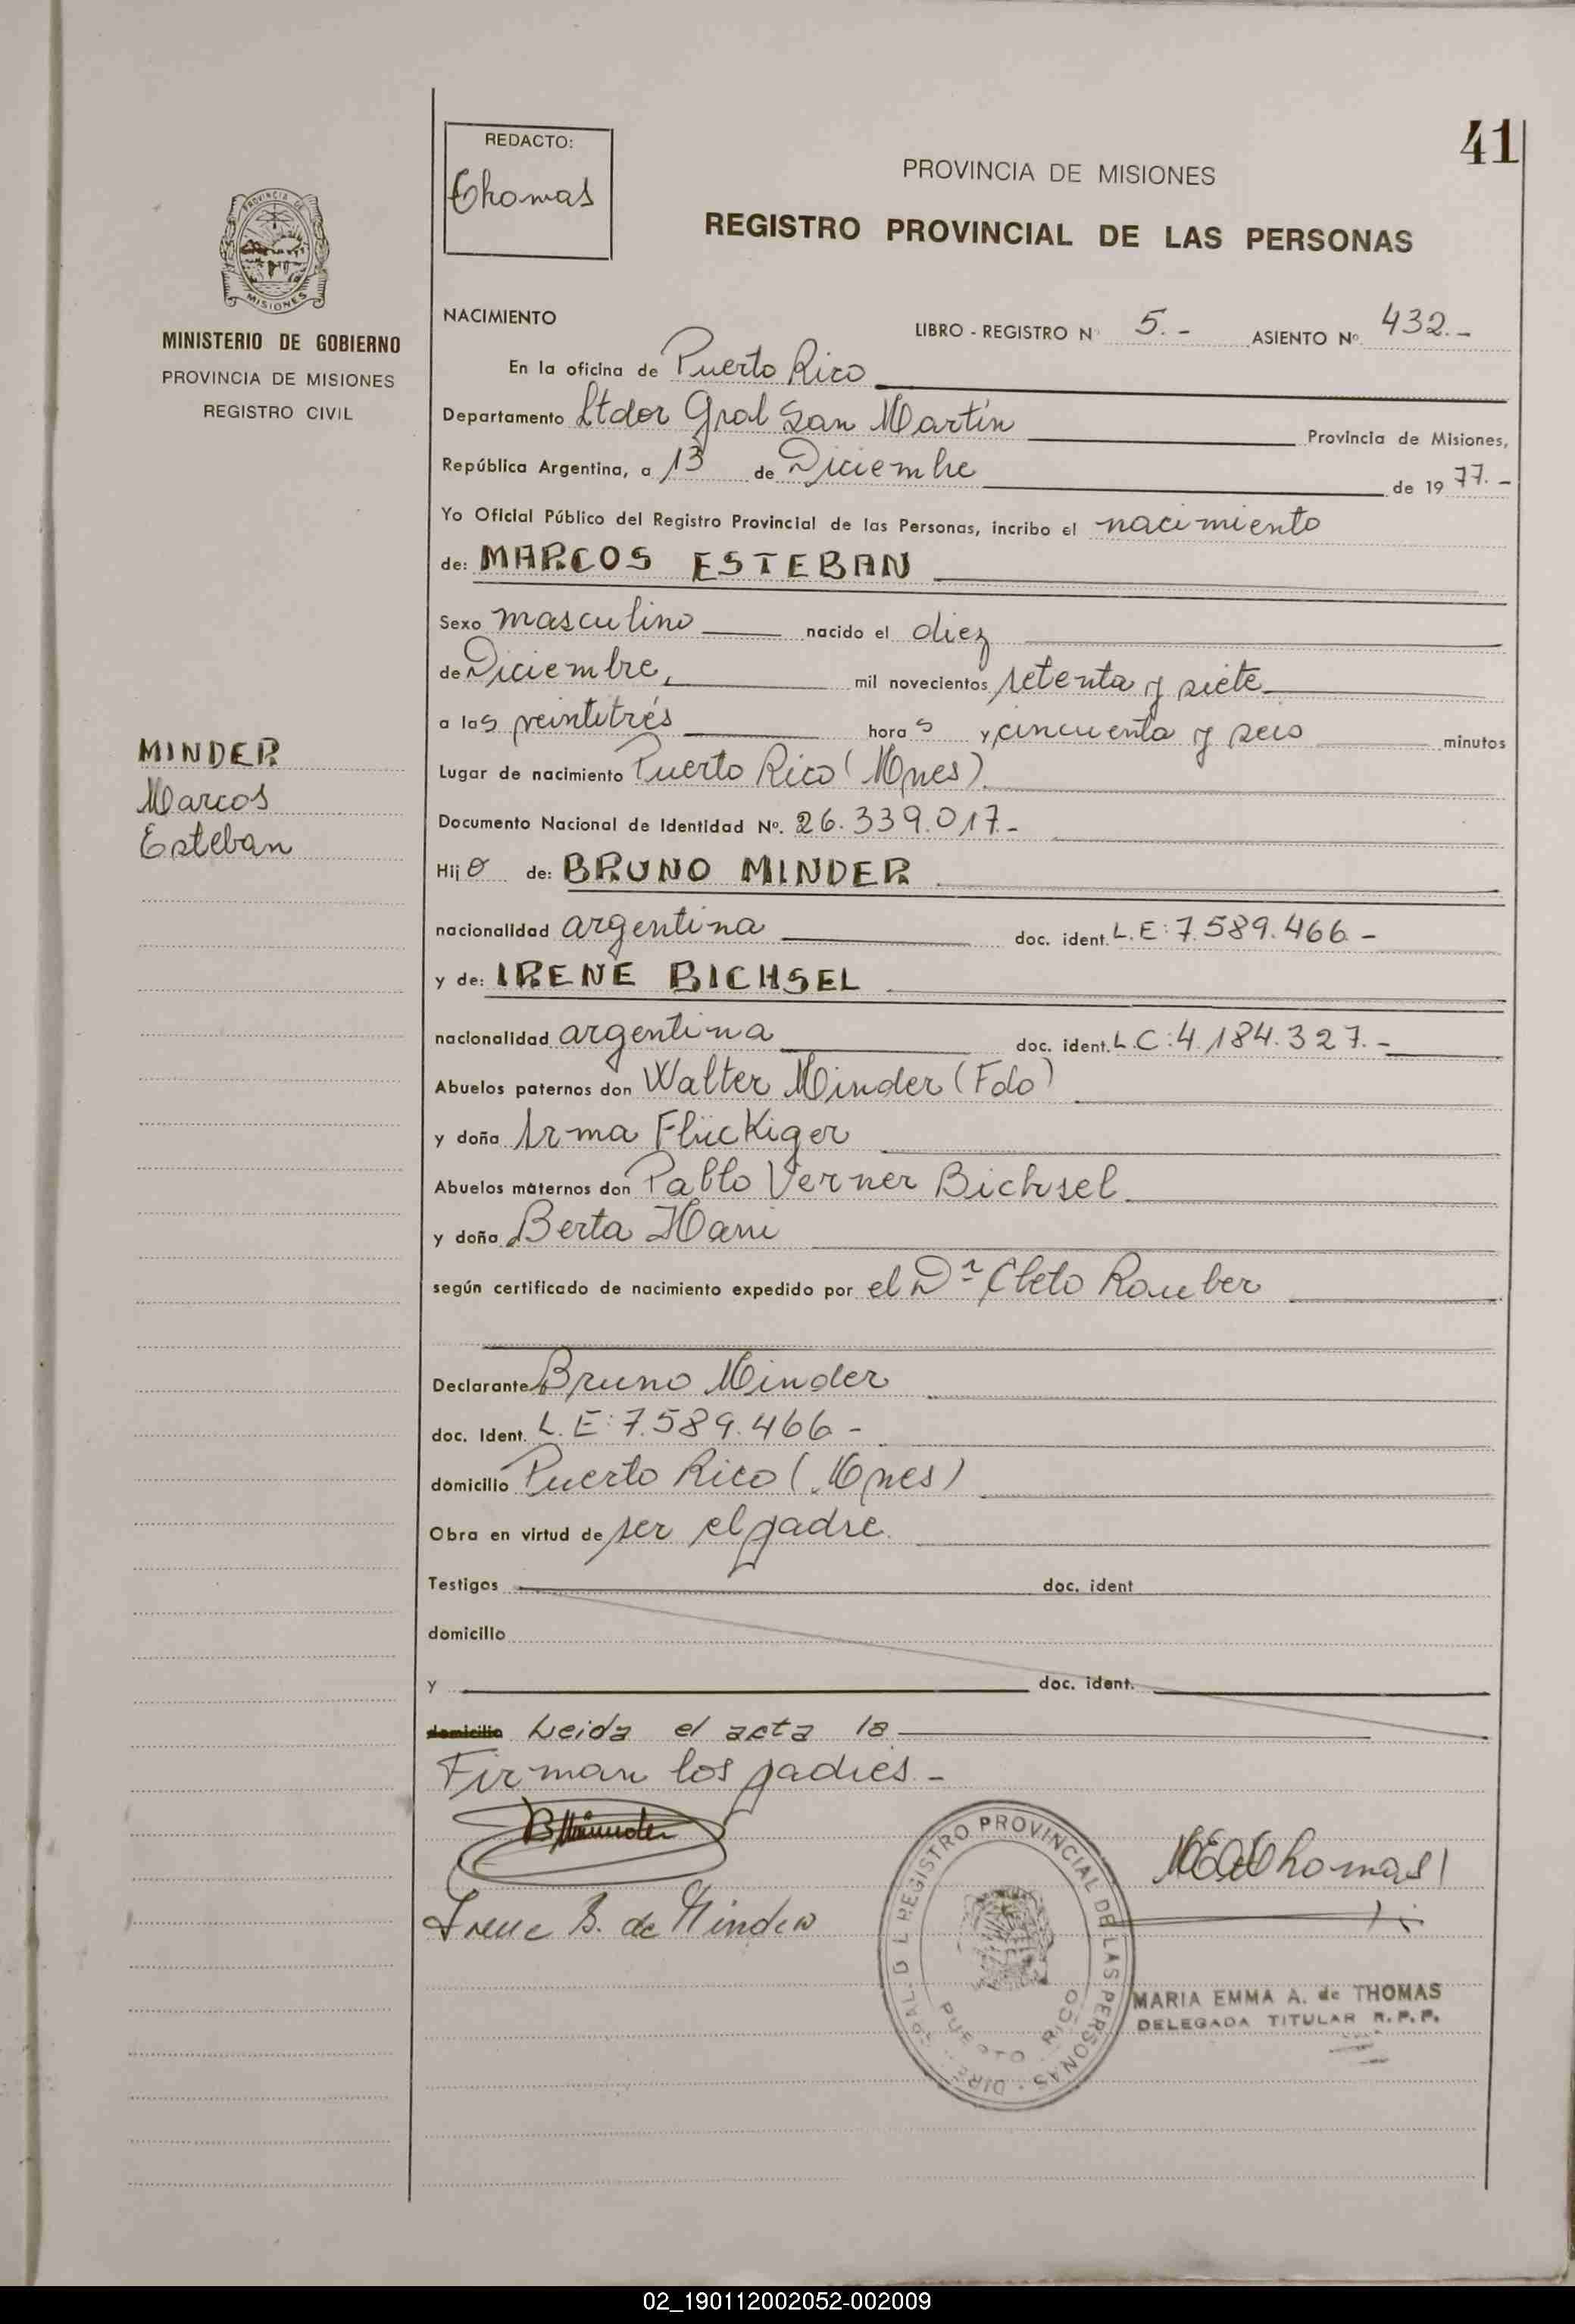 41
REDACTO:
Thomas
PROVINCIA DE MISIONES
REGISTRO PROVINCIAL DE LAS PERSONAS
PROVINCIA DE
MISIONES
MINISTERIO DE GOBIERNO
PROVINCIA DE MISIONES
REGISTRO CIVIL
MINDER
Marcos
Esteban
NACIMIENTO
LIBRO - REGISTRO N° 5.- ASIENTO Nº. 432.-
En la oficina de Puerto Rico
Departamento Ltdor Gral San Martín Provincia de Misiones,
República Argentina, a 13 de Diciembre de 1977.-
Yo Oficial Público del Registro Provincial de las Personas, incribo el nacimiento
de: MARCOS ESTEBAN
Sexo masculino nacido el diez
de Diciembre, mil novecientos setenta y siete
a las veintitrés horas y cincuenta y seis minutos
Lugar de nacimiento Puerto Rico (Mnes)
Documento Nacional de Identidad Nº. 26.339.017.-
Hijo de: BRUNO MINDER
nacionalidad argentina doc. ident. L.E: 7.589.466.-
y de: IRENE BICHSEL
nacionalidad argentina doc. ident. L.C: 4.184.327.-
Abuelos paternos don Walter Minder (Fdo)
y doña Irma Flückiger
Abuelos maternos don Pablo Verner Bichsel
y doña Berta Hani
según certificado de nacimiento expedido por el Dr Cleto Rauber
Declarante Bruno Minder
doc. Ident. L.E: 7.589.466-
domicilio Puerto Rico (Mnes)
Obra en virtud de ser el padre.
Testigos doc. ident
domicilio
y doc. ident.
domicilio Leida el acta la
Firman los padres.-
B Minder
Irene B. de Minder
MEA de Thomas
REGISTRO PROVINCIAL DE LAS PERSONAS - DIREC. GRAL. DEL
PUERTO RICO
MARIA EMMA A. de THOMAS
DELEGADA TITULAR R.P.P.
02_190112002052-002009